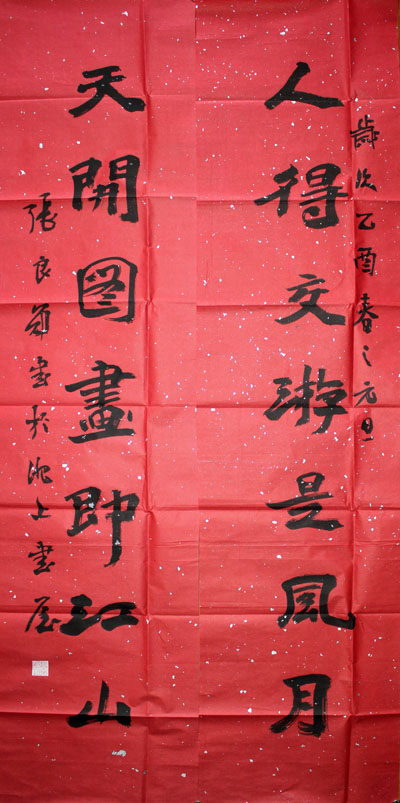 歲次乙酉春之元旦
人得交游是風月
天開圖畫即江山
張良勛書於淝上書屋